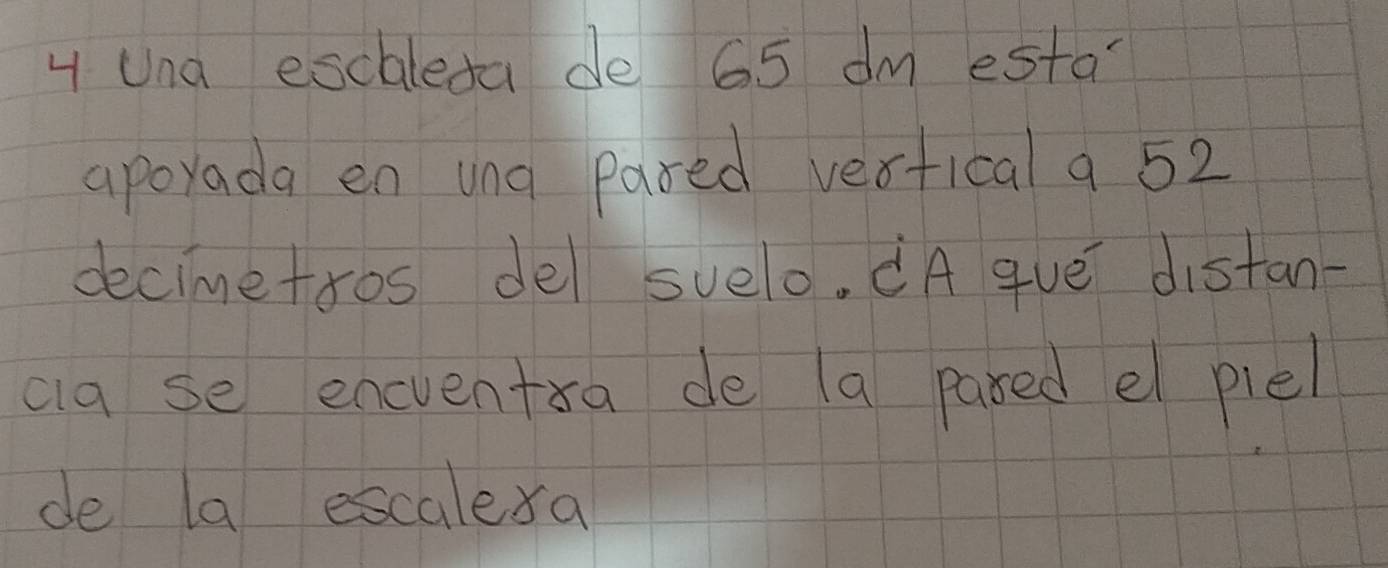 4 Una escalera de 65 dm está
apoyada en una pared vertical a 52
decimetros del suelo. ¿A qué distan-
cia se encuentra de la pared el piel
de la escalera